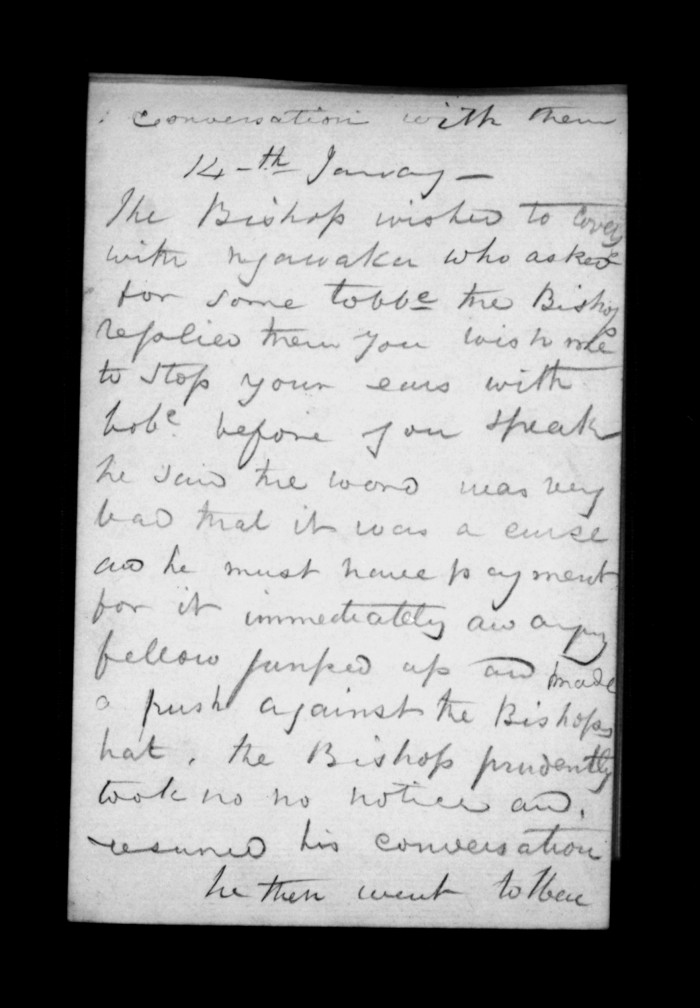 Conversation with them
14-th Januay -
The Bishop wished to Convey
with Ngawaka who asked
for some tobbe the Bishop
replied then you wish me
to stop your ears with
tobe. before you speak
he said the word was very
bad that it was a curse
and he must have payment
for it immediately an angry
fellow jumped up and made
a push against the Bishops
hat. the Bishop prudently
took no no notice and.
resumed his conversation
he then went to